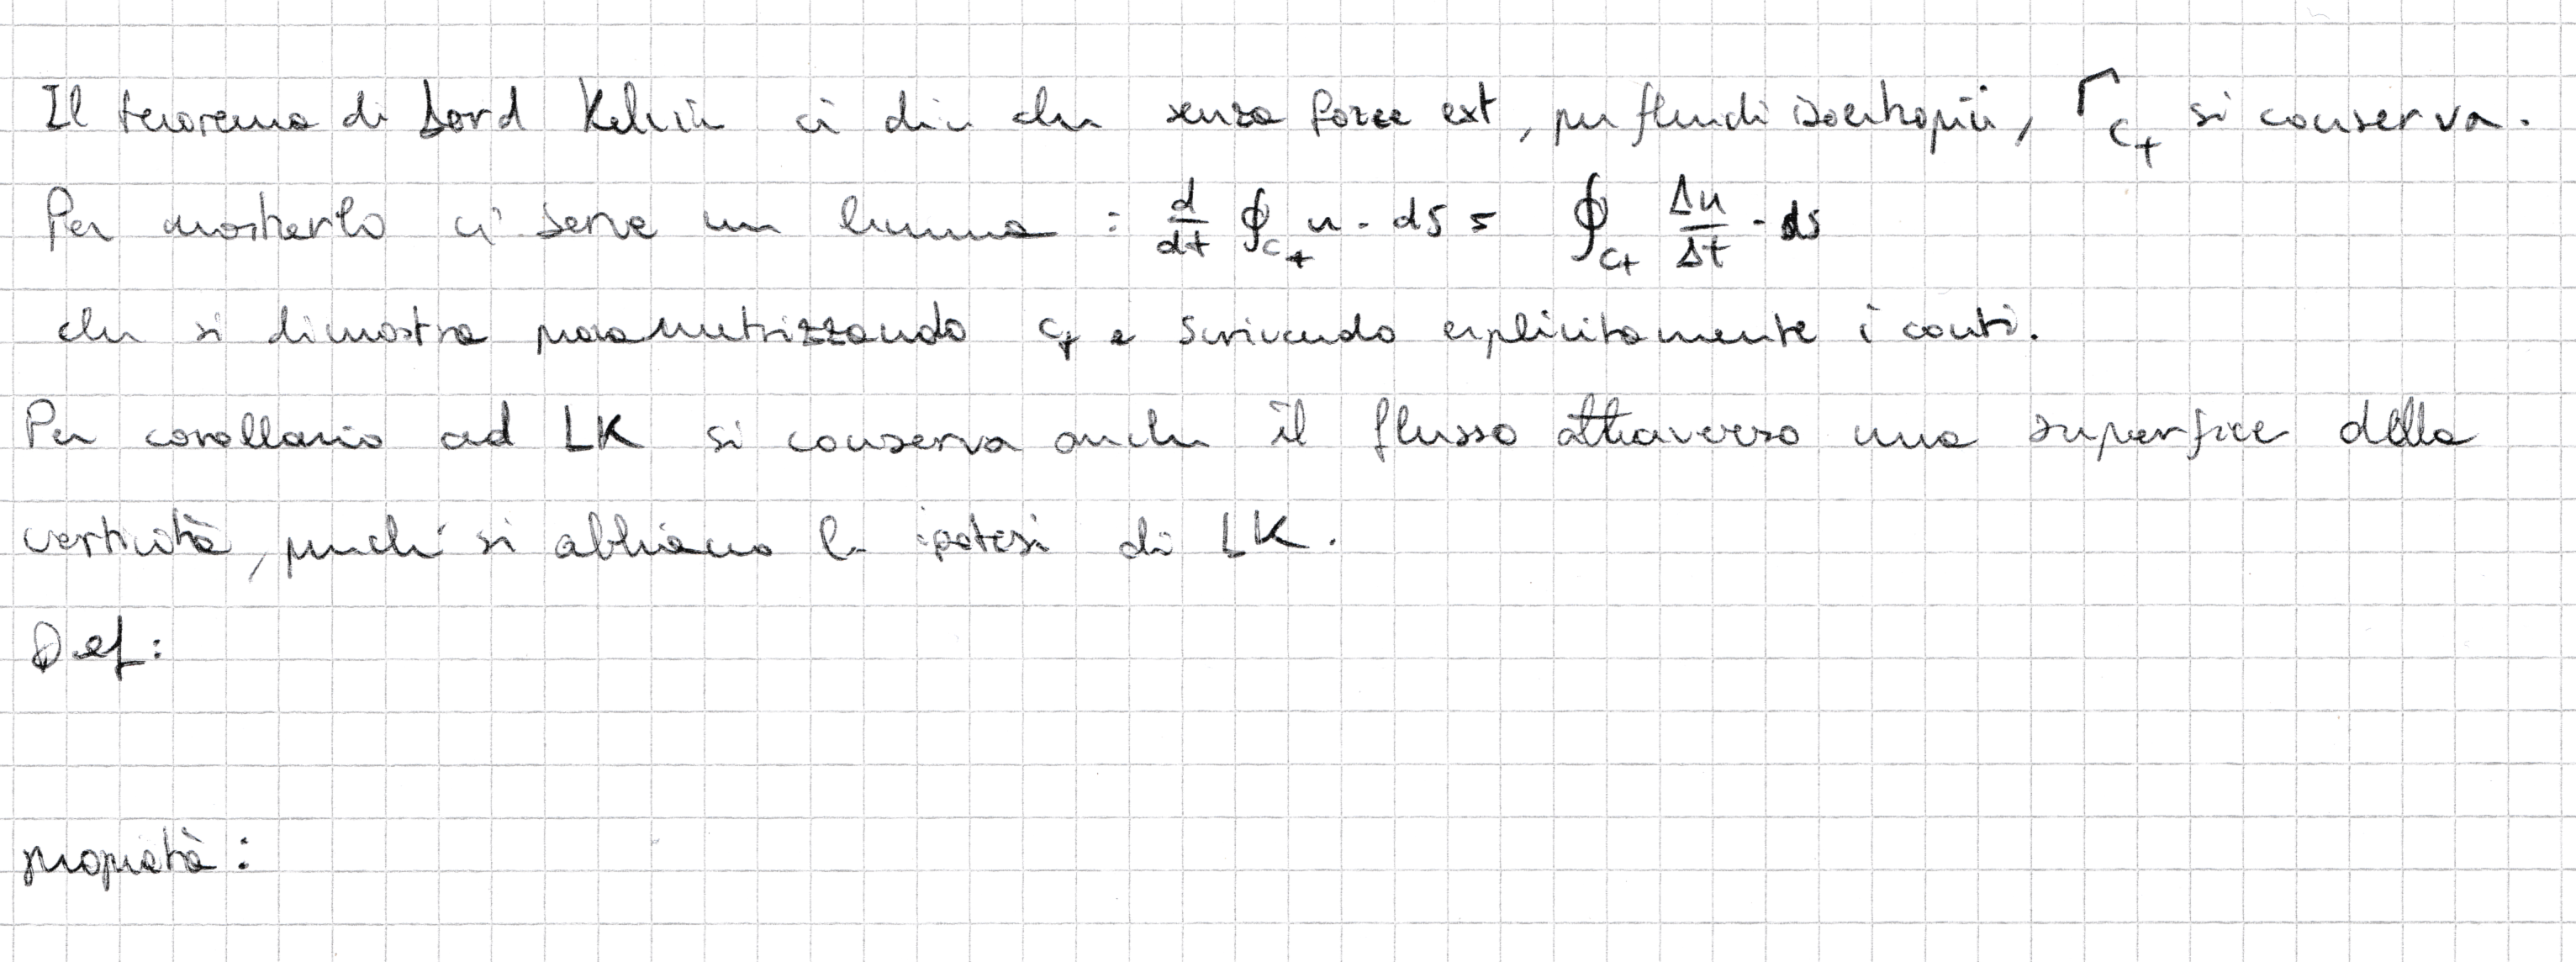 Il teorema di Lord Kelvin ci dice che senza forze ext, per fluidi isoentropici, Γ_{C_t} si conserva.
Per mostrarlo ci serve un lemma : d/dt ∮_{C_t} u · ds = ∮_{C_t} Du/Dt · ds
che si dimostra parametrizzando C_t e scrivendo esplicitamente i conti.
Per corollario ad LK si conserva anche il flusso attraverso una superfice della
vorticità, purché si abbiano le ipotesi di LK.
Def:
proprietà: